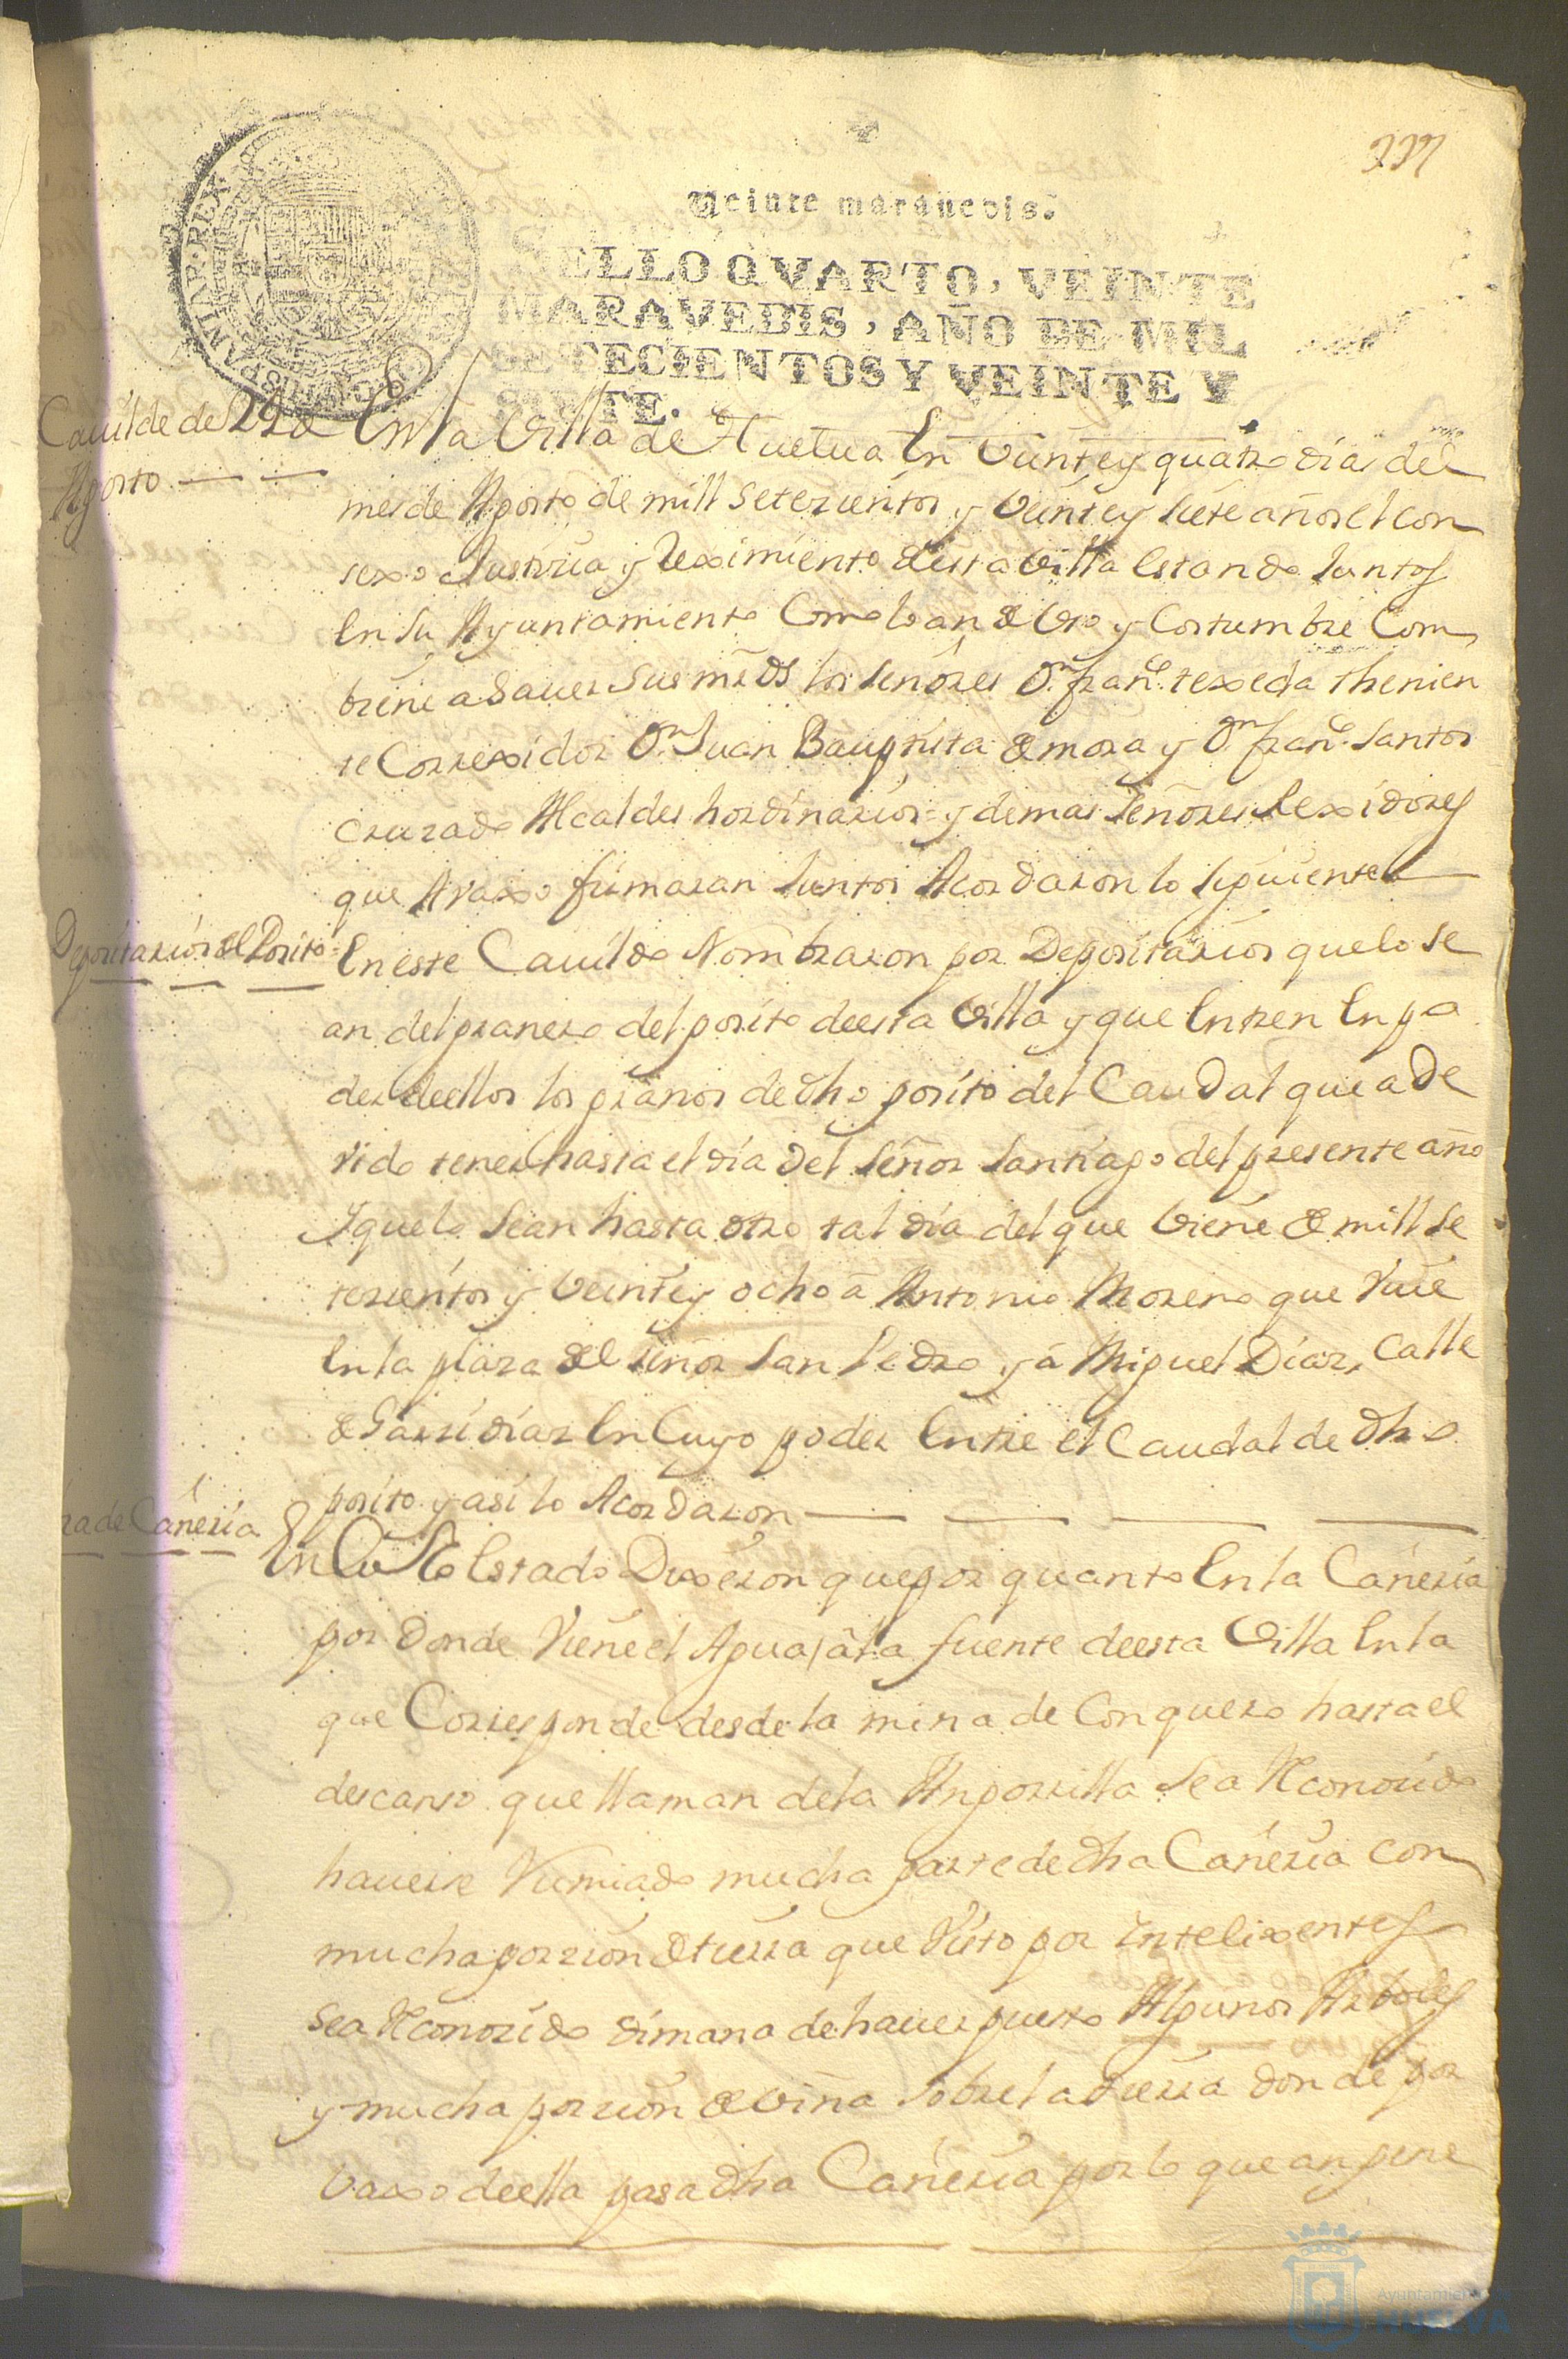 Veinte maravedis.
SELLO QVARTO, VEINTE
MARAVEDIS, AÑO DE MIL
SETECIENTOS Y VEINTE Y
SIETE.
HISPANIAR·REX
Cauildo de
Agosto
En la Villa de Huelua En Veinte y quatro dias del
mes de Agosto de mill setezientos y Veinte y siete años el con
sexo Justizia y Reximiento desta Villa estando Juntos
En su Ayuntamiento Como lo an de Vso y Costumbre Com
biene a Sauer Sus mrds los señores Dn. franco. texeda thenien
te Correxidor Dn. Juan Bauptista de mora y Dn. franco. Santos
cruzado Alcaldes hordinarios y demas señores Rexidores
que Avaxo firmaran Juntos Acordaron lo siguiente
Depositarios del Posito
En este Cauildo Nombraron por Depositarios que lo se
an del granero del posito de esta Villa y que Entren En po
der de ellos los granos de dho posito del Caudal que a de
vido tener hasta el dia del señor Santiago del presente año
Y que lo sean hasta otro tal dia del que Viene de mill se
tezientos y Veinte y ocho a Antonio Moreno que Viue
En la plaza del señor San Pedro y a Miguel Diaz, Calle
de Garzi diaz En Cuyo poder Entre el Caudal de dho
posito y asi lo Acordaron
ra de Cañeria
En este Estado Dixeron que por quanto En la Cañeria
por Donde Viene el Agua a la fuente de esta Villa En la
que Corresponde desde la mina de Conquero hasta el
descanso que llaman de la Angorrilla se a Reconozido
hauerse Vumiado mucha parte de dha Cañeria con
mucha porzion de tierra que Visto por Intelixentes
se a Reconozido dimana de hauer puesto Algunos Arboles
y mucha porzion de viña sobre la tierra donde por
vaxo de ella pasa dha Cañeria por lo que an pene
Ayuntamiento
HUELVA